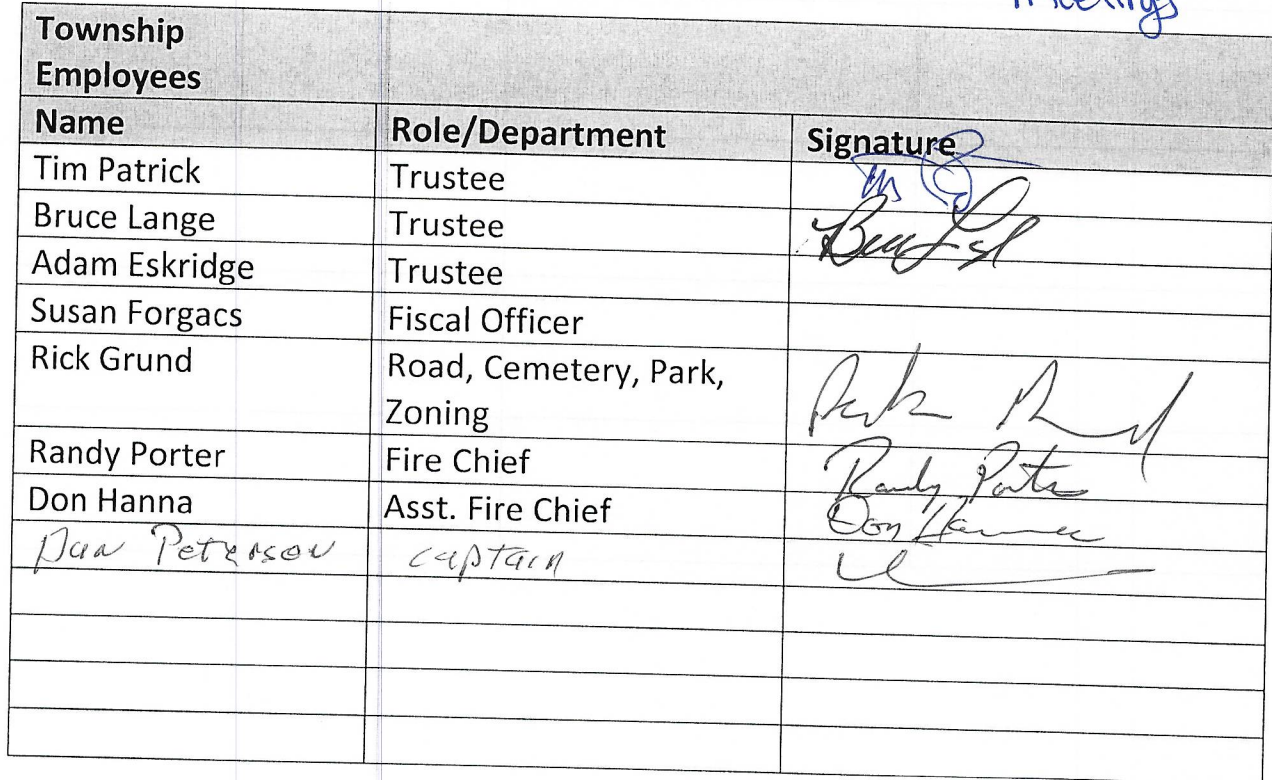 meetings
Township
Employees
Name Role/Department Signature
Tim Patrick Trustee
Bruce Lange Trustee
Adam Eskridge Trustee
Susan Forgacs Fiscal Officer
Rick Grund Road, Cemetery, Park,
Zoning
Randy Porter Fire Chief Randy Porter
Don Hanna Asst. Fire Chief Don Hanna
Dan Peterson captain